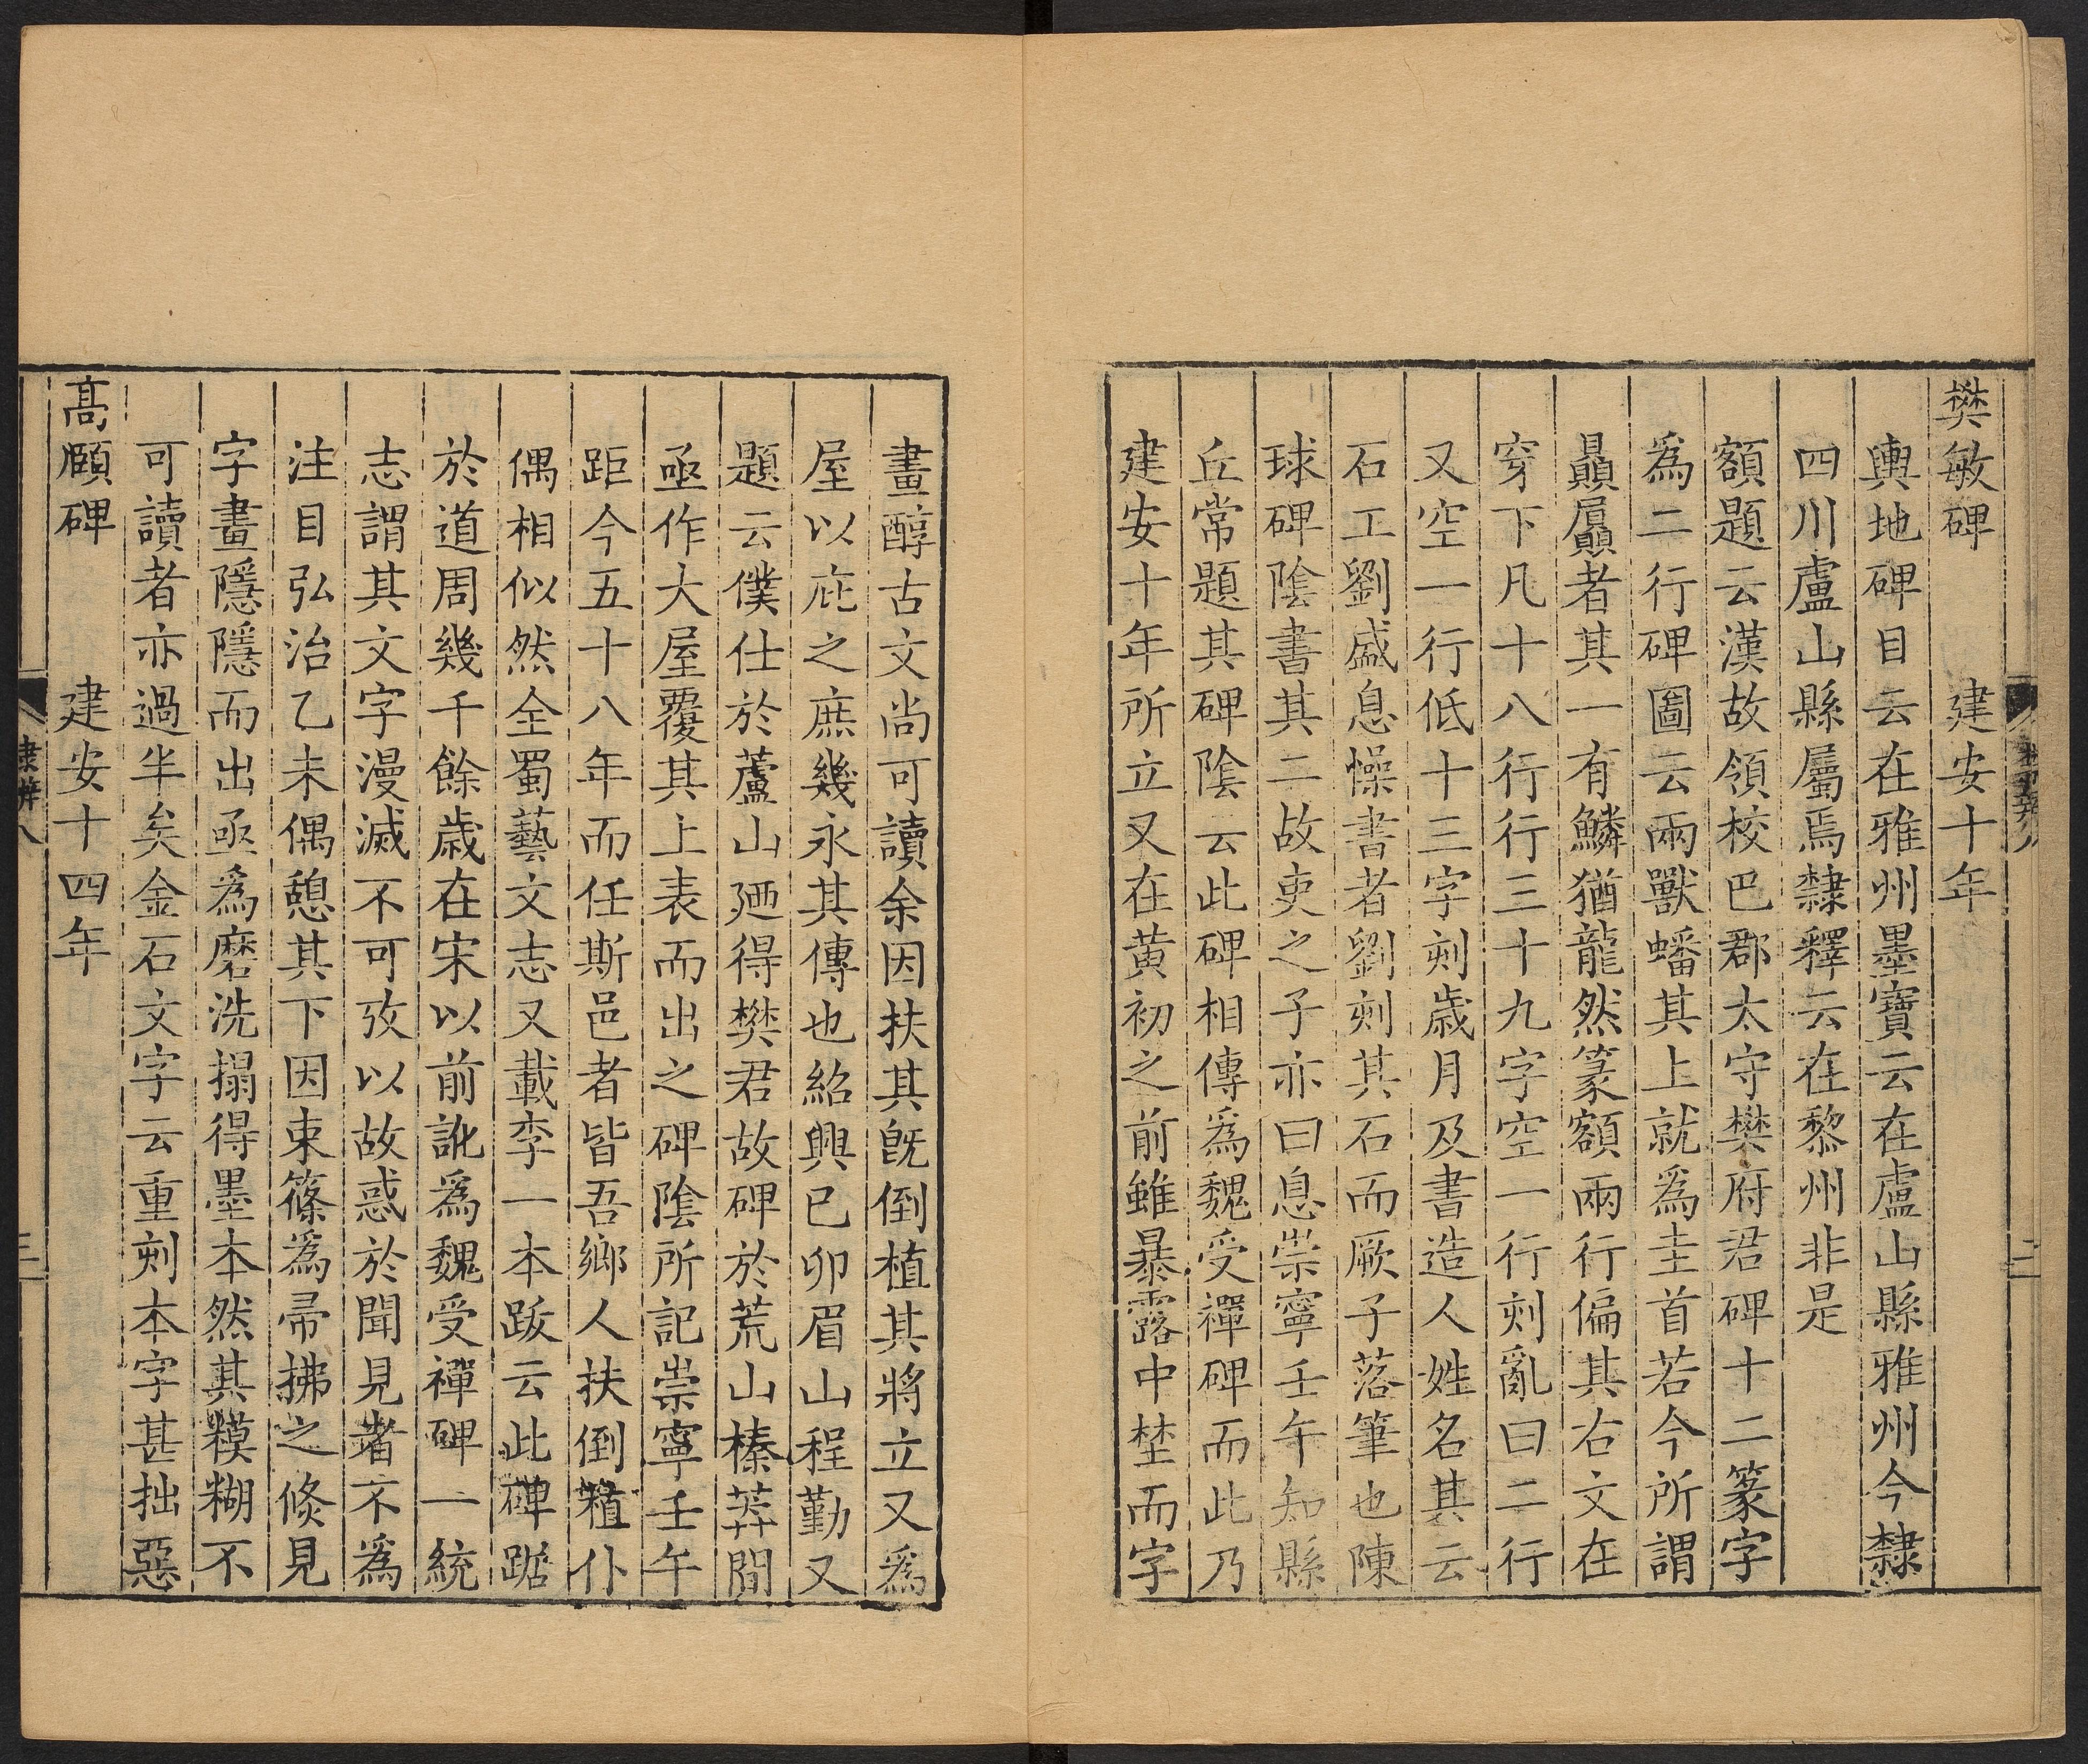 樊敏碑 建安十年
輿地碑目云在雅州墨寶云在盧山縣雅州今隸
四川盧山縣屬焉隸釋云在黎州非是
額題云漢故領校巴郡太守樊府君碑十二篆字
為二行碑圖云兩獸蟠其上就為圭首若今所謂
贔屭者其一有鱗猶龍然篆額兩行偏其右文在
穿下凡十八行行三十九字空一行刻亂曰二行
又空一行低十三字刻歲月及書造人姓名其云
石工劉盛息懆書者劉刻其石而厥子落筆也陳
球碑陰書其二故吏之子亦曰息崇寧壬午知縣
丘常題其碑陰云此碑相傳為魏受禪碑而此乃
建安十年所立又在黃初之前雖暴露中埜而字
畫醇古文尚可讀余因扶其旣倒植其將立又爲
屋以庇之庶幾永其傳也紹興己卯眉山程勤又
題云僕仕於蘆山廼得樊君故碑於荒山榛莽間
亟作大屋覆其上表而出之碑陰所記崇寧壬午
距今五十八年而任斯邑者皆吾鄉人扶倒植仆
偶相似然全蜀藝文志又載李一本跋云此碑踞
於道周幾千餘歲在宋以前訛爲魏受禪碑一統
志謂其文字漫滅不可攷以故惑於聞見者不爲
注目弘治乙未偶憩其下因束篠爲帚拂之倐見
字畫隱隱而出亟爲磨洗搨得墨本然其糢糊不
可讀者亦過半矣金石文字云重刻本字甚拙惡
高頤碑 建安十四年
隸辨八
三